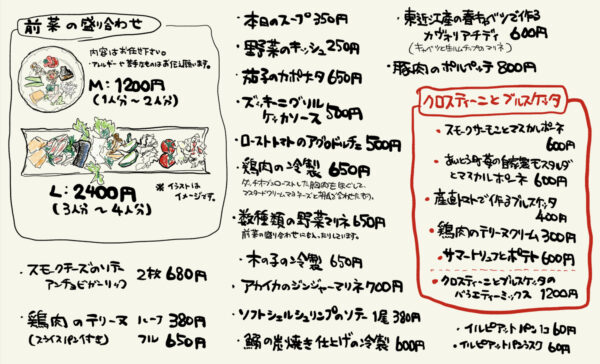 前菜の盛り合わせ
内容はお任せ下さい。
・アレルギーや苦手なものはお伝え願います。
M：1200円
(1人分〜2人分)
L：2400円
(3人分〜4人分)
※イラストは
イメージです。
・スモークチーズのソテー
アンチョビガーリック 2枚 680円
・鶏肉のテリーヌ ハーフ 380円
(スライスパン付き) フル 650円
・本日のスープ 350円
・野菜のキッシュ 250円
・茄子のカポナタ 650円
・ズッキーニグリル
ケッカソース 500円
・ローストトマトのアグロドルチェ 500円
・鶏肉の冷製 650円
マスタードクリーム、マヨネーズと
・数種類の野菜マリネ 650円
前菜の盛り合わせにも入ったりしています。
・木の子の冷製 650円
・アカイカのジンジャーマリネ 700円
・ソフトシェルシュリンプのソテー 1尾 380円
・鰯の炭焼き仕上げの冷製 600円
・東近江産の春キャベツで作る
カヴォリアチディ 600円
(キャベツと生ハム、チップのマリネ)
・豚肉のポルペッテ 800円
クロスティーニとブルスケッタ
・スモークサーモンとマスカルポーネ
600円
とマスカルポーネ 600円
・産直トマトで作るブルスケッタ
400円
・鶏肉のテリーヌクリーム 300円
・サマートリュフとポテト 600円
・クロスティーニとブルスケッタの
バラエティーミックス 1200円
・イルピアットパン 1コ 60円
・イルピアットパンラスク 60円